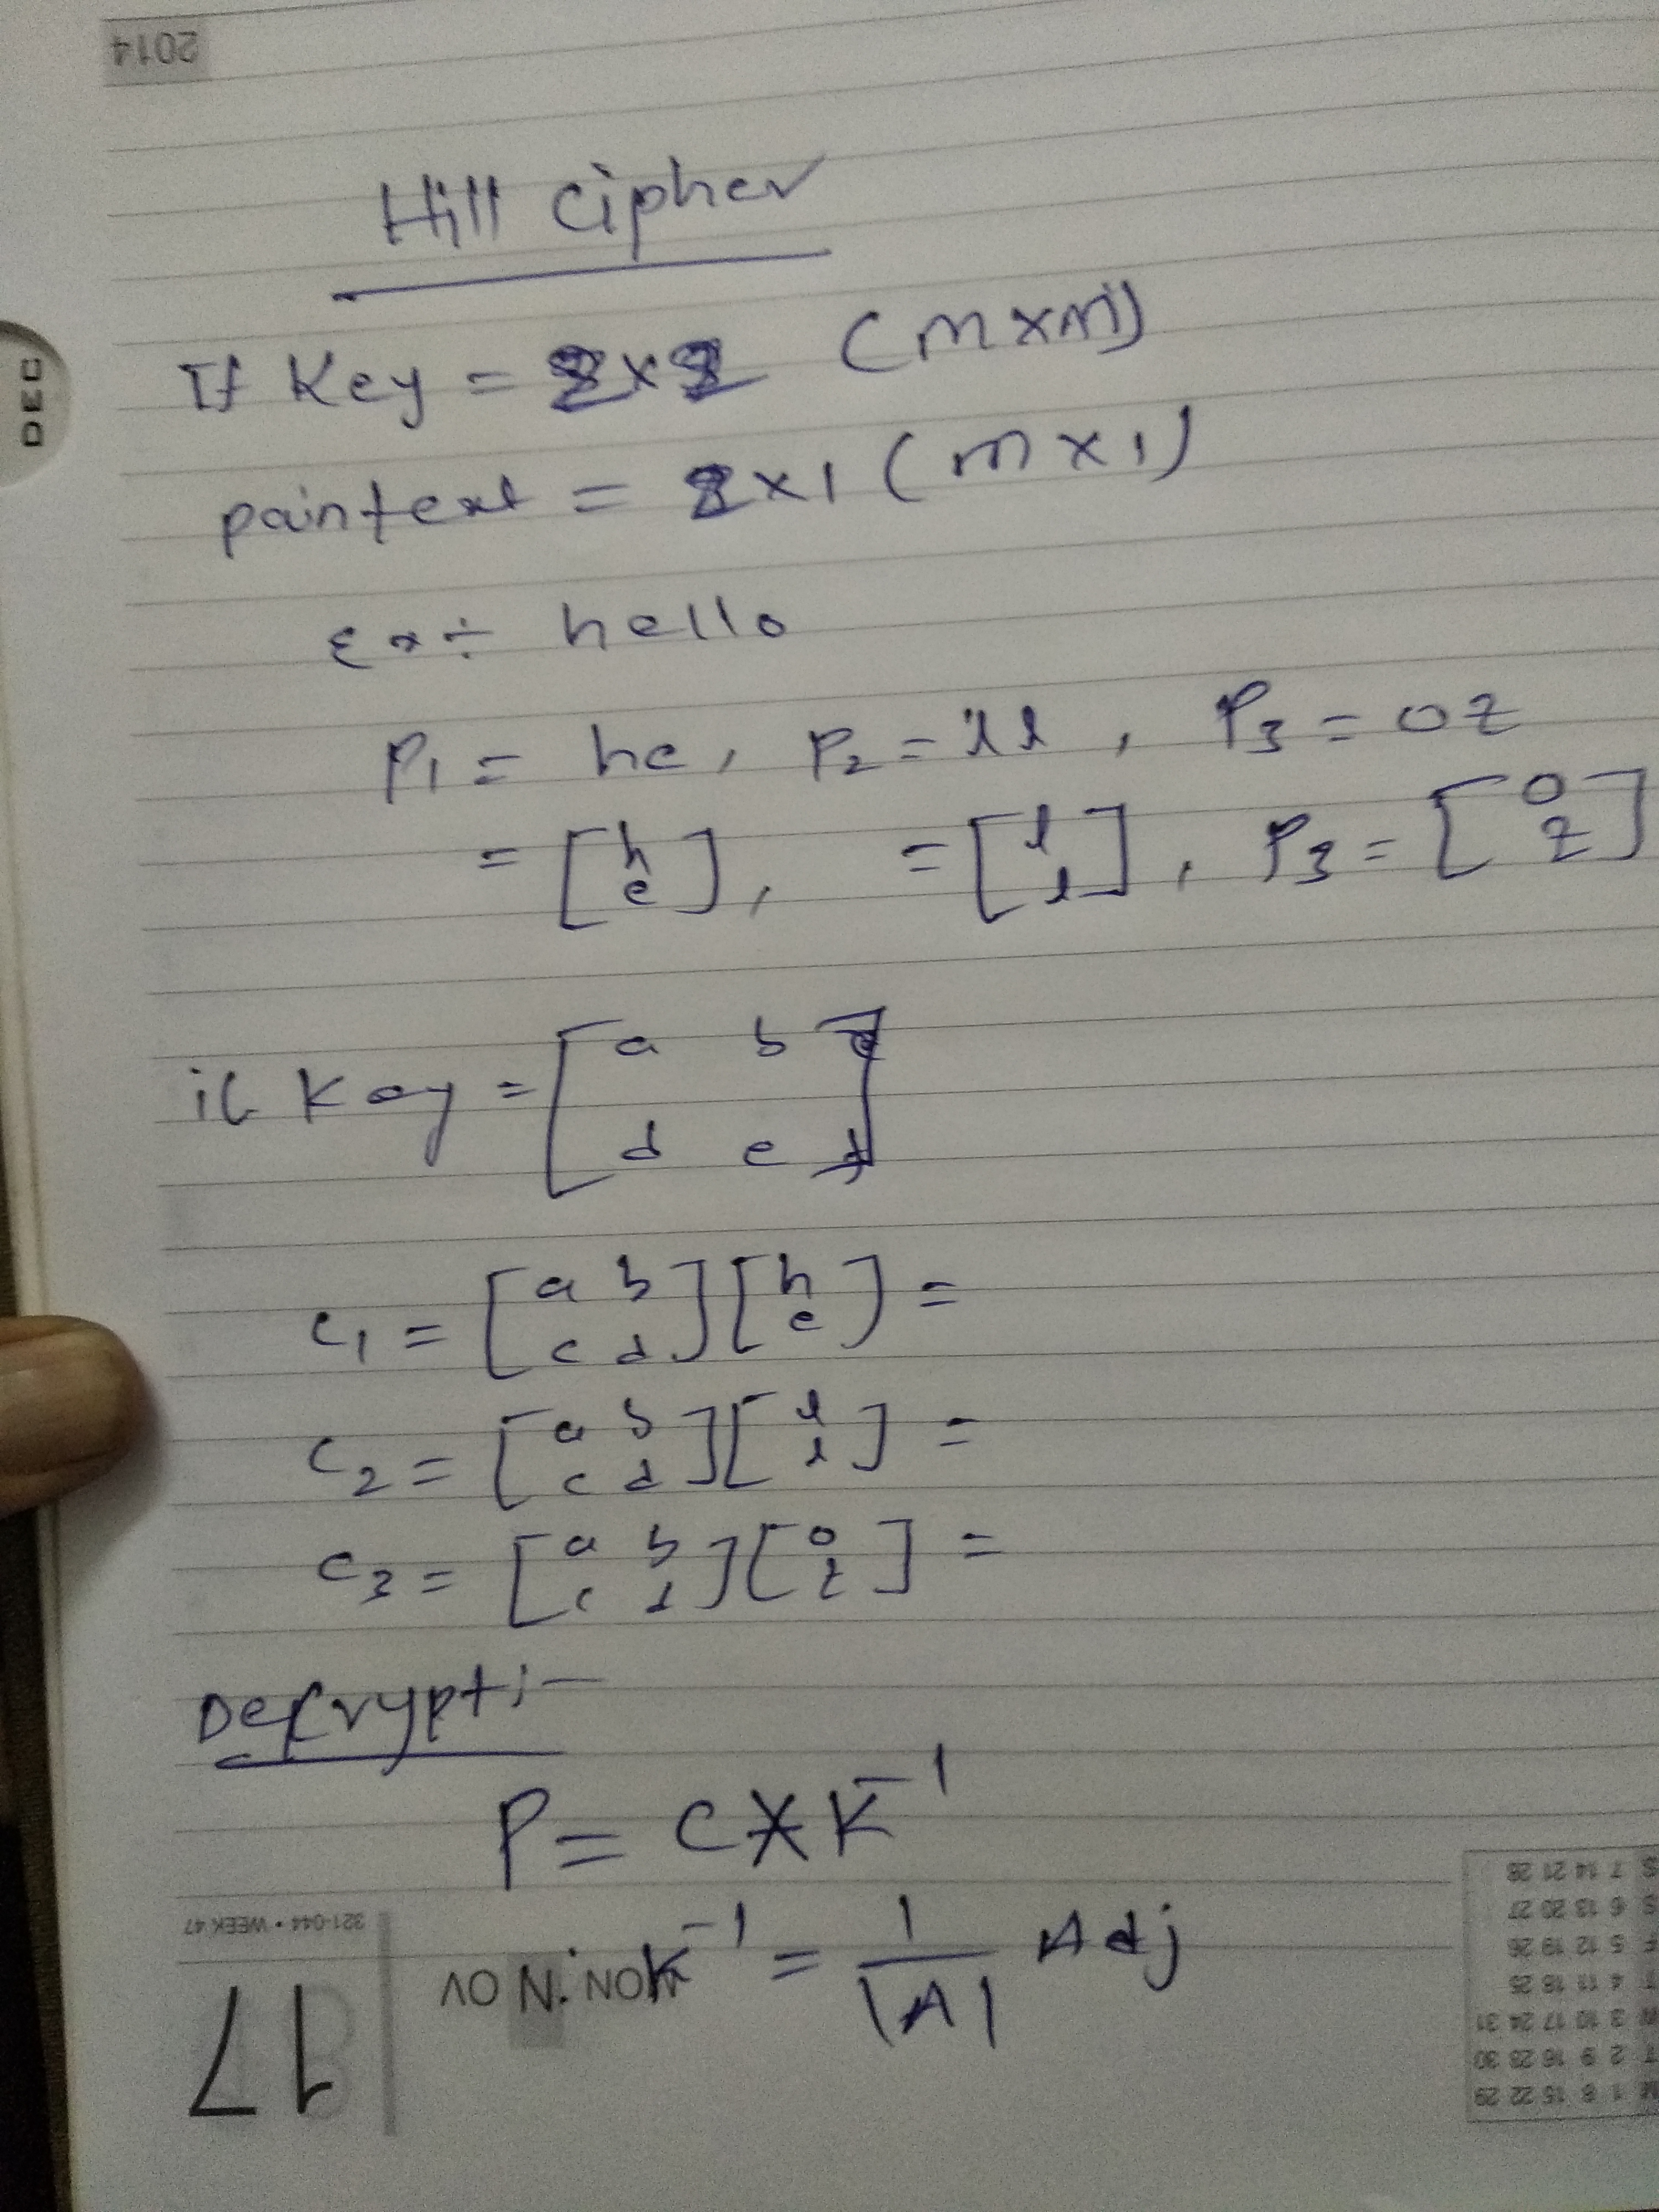 2014
DEC
Hill Cipher
If Key = 2x2 (mxm)
paintext = 2x1 (mx1)
Ex÷ hello
P1 = he, P2 = ll, P3 = oz
= [h e], = [l l], P3 = [o z]
Key = [a b
d e]
C1 = [a b c d] [h e] =
C2 = [a b c d] [l l] =
C3 = [a b c d] [o z] =
Decrypt:-
P = C * K^-1
K^-1 = 1/|A| Adj
321-044 • WEEK 47
17
NOV
MON
S 7 14 21 28
S 6 13 20 27
F 5 12 19 26
T 4 11 18 25
W 3 10 17 24 31
T 2 9 16 23 30
M 1 8 15 22 29